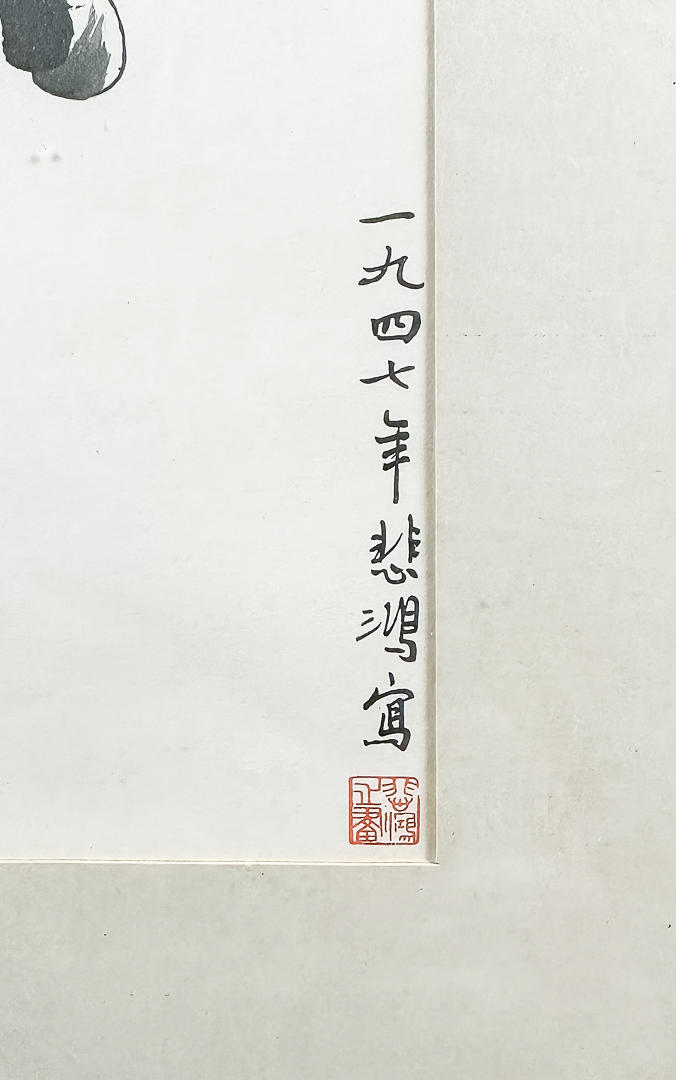 一九四七年悲鴻寫
悲鴻
之畫